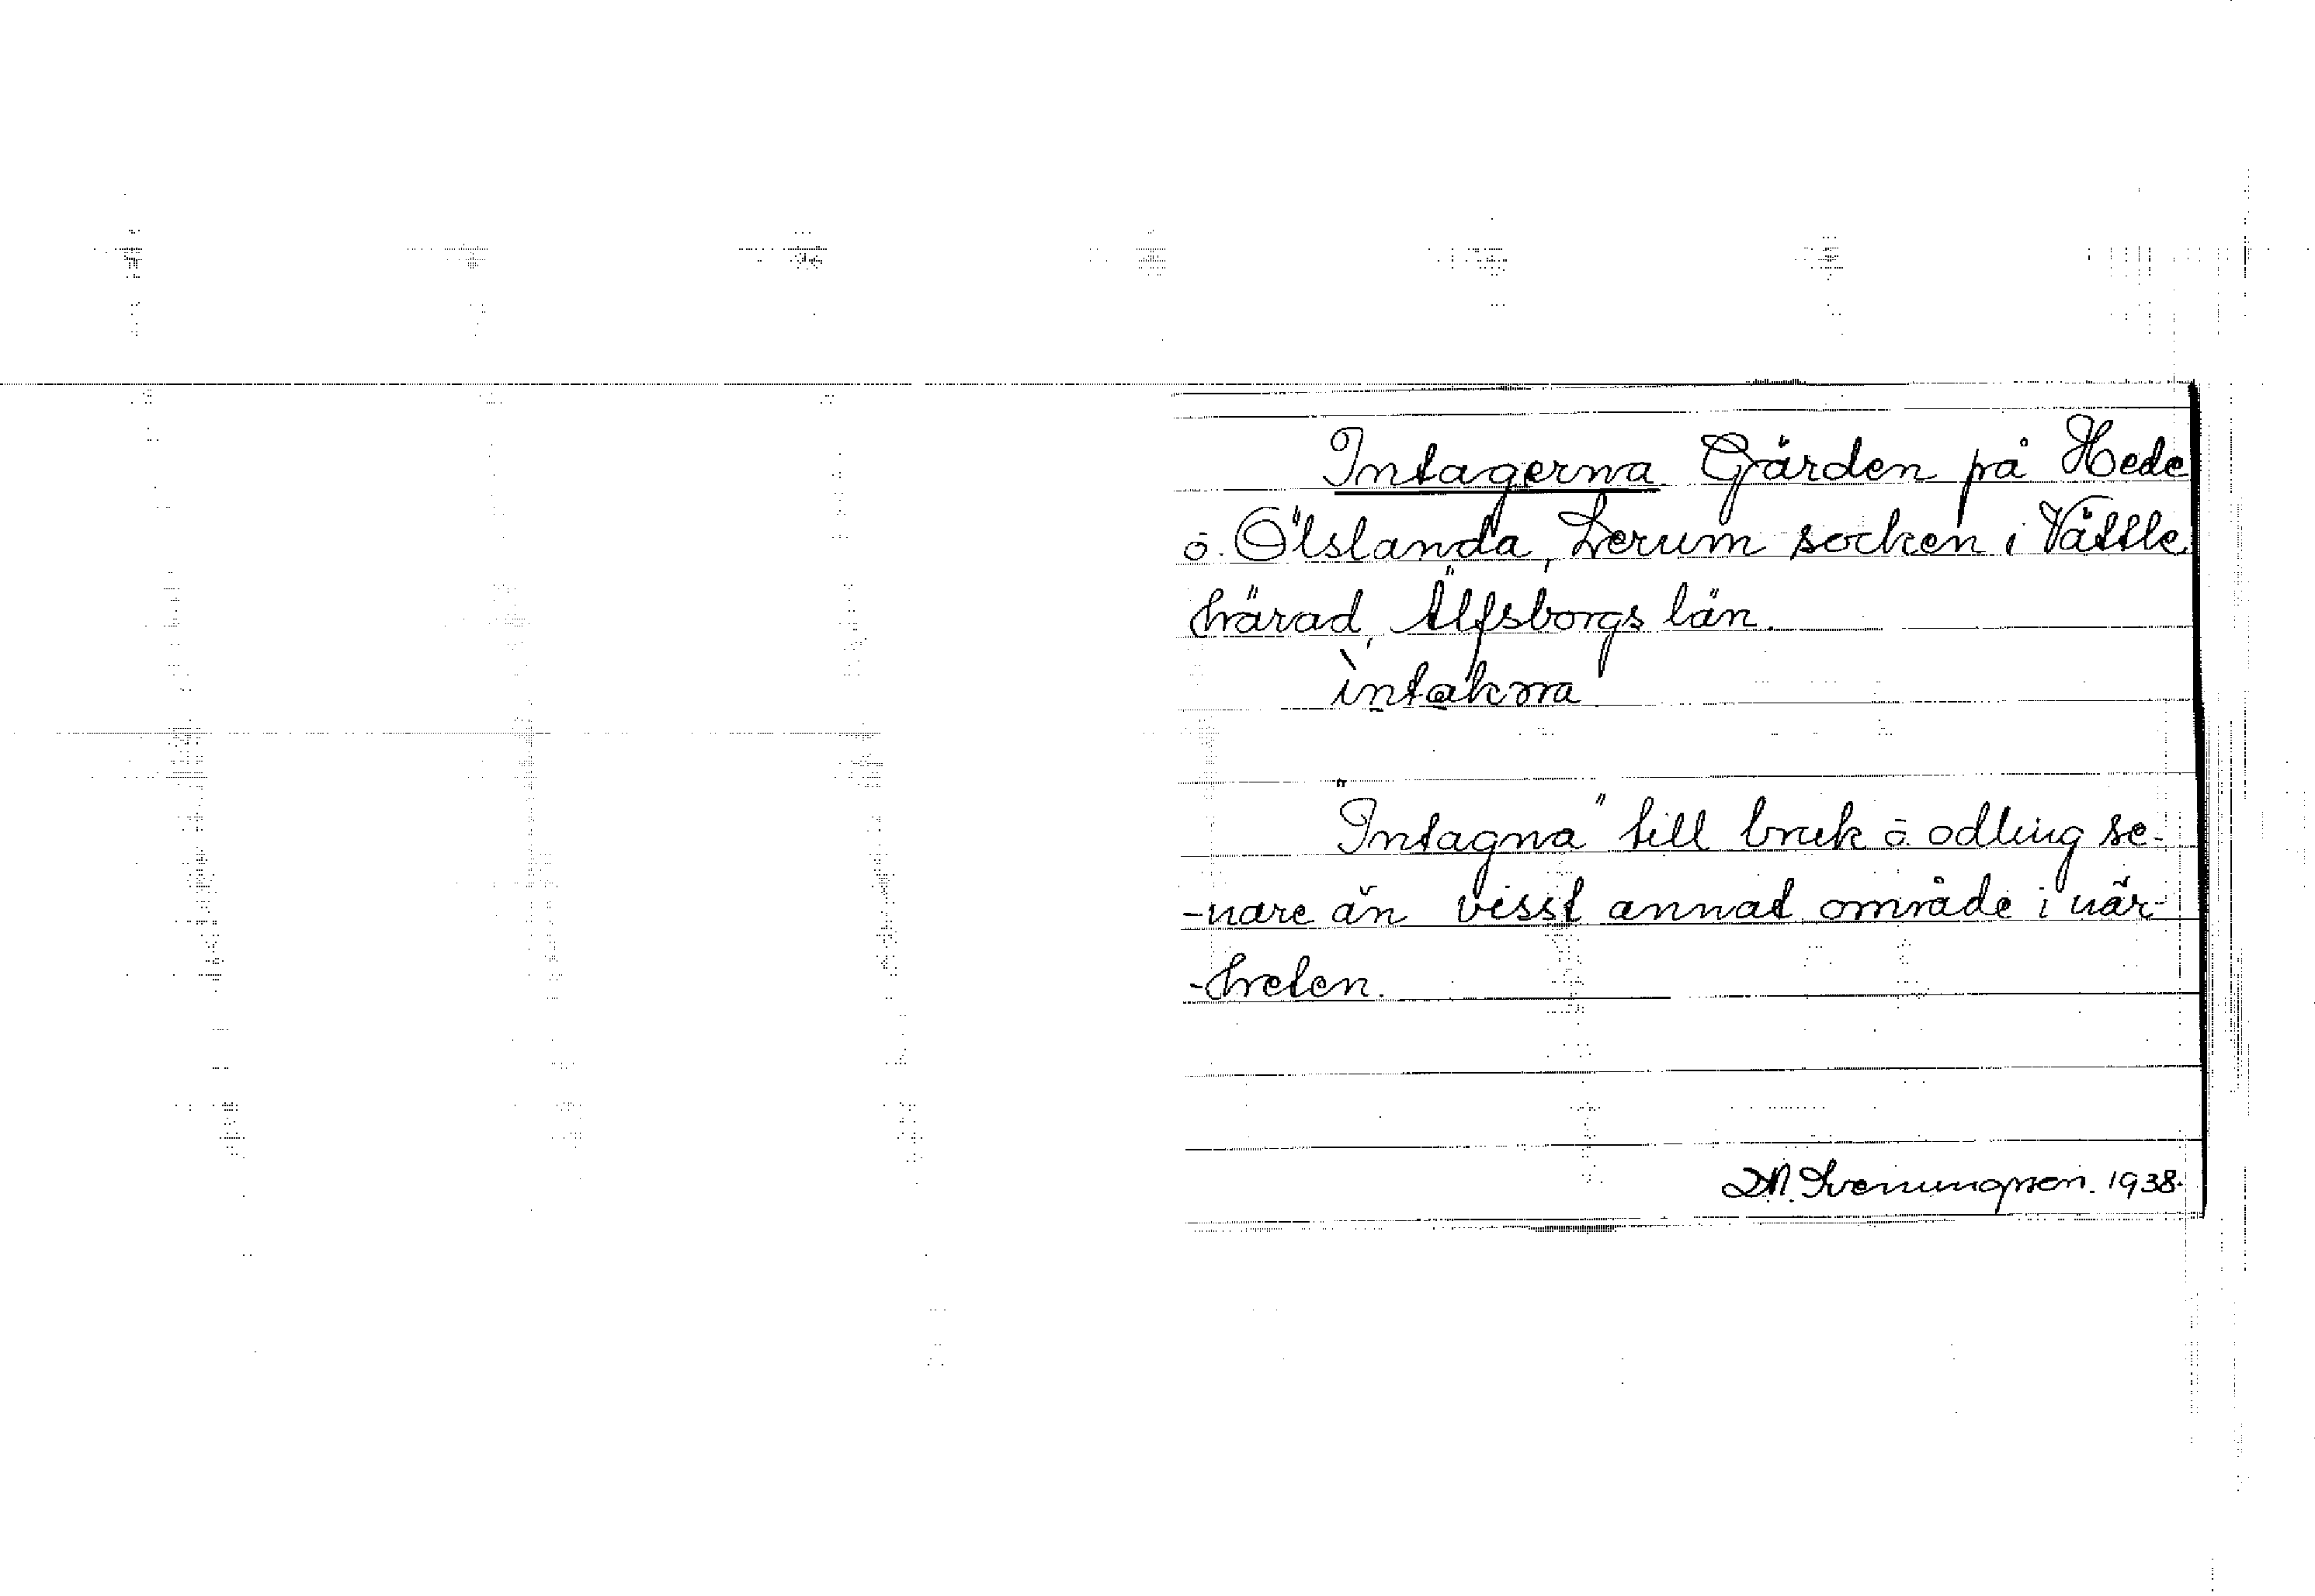 Intagerna Gärden på Hede
o. Ölslanda, Lerum socken i Vättle
härad, Älfsborgs län.
ìntakɴa
"Intagna" till bruk o. odling se-
-nare än visst annat område i när-
-heten.
D.N. Svenungsson. 1938.